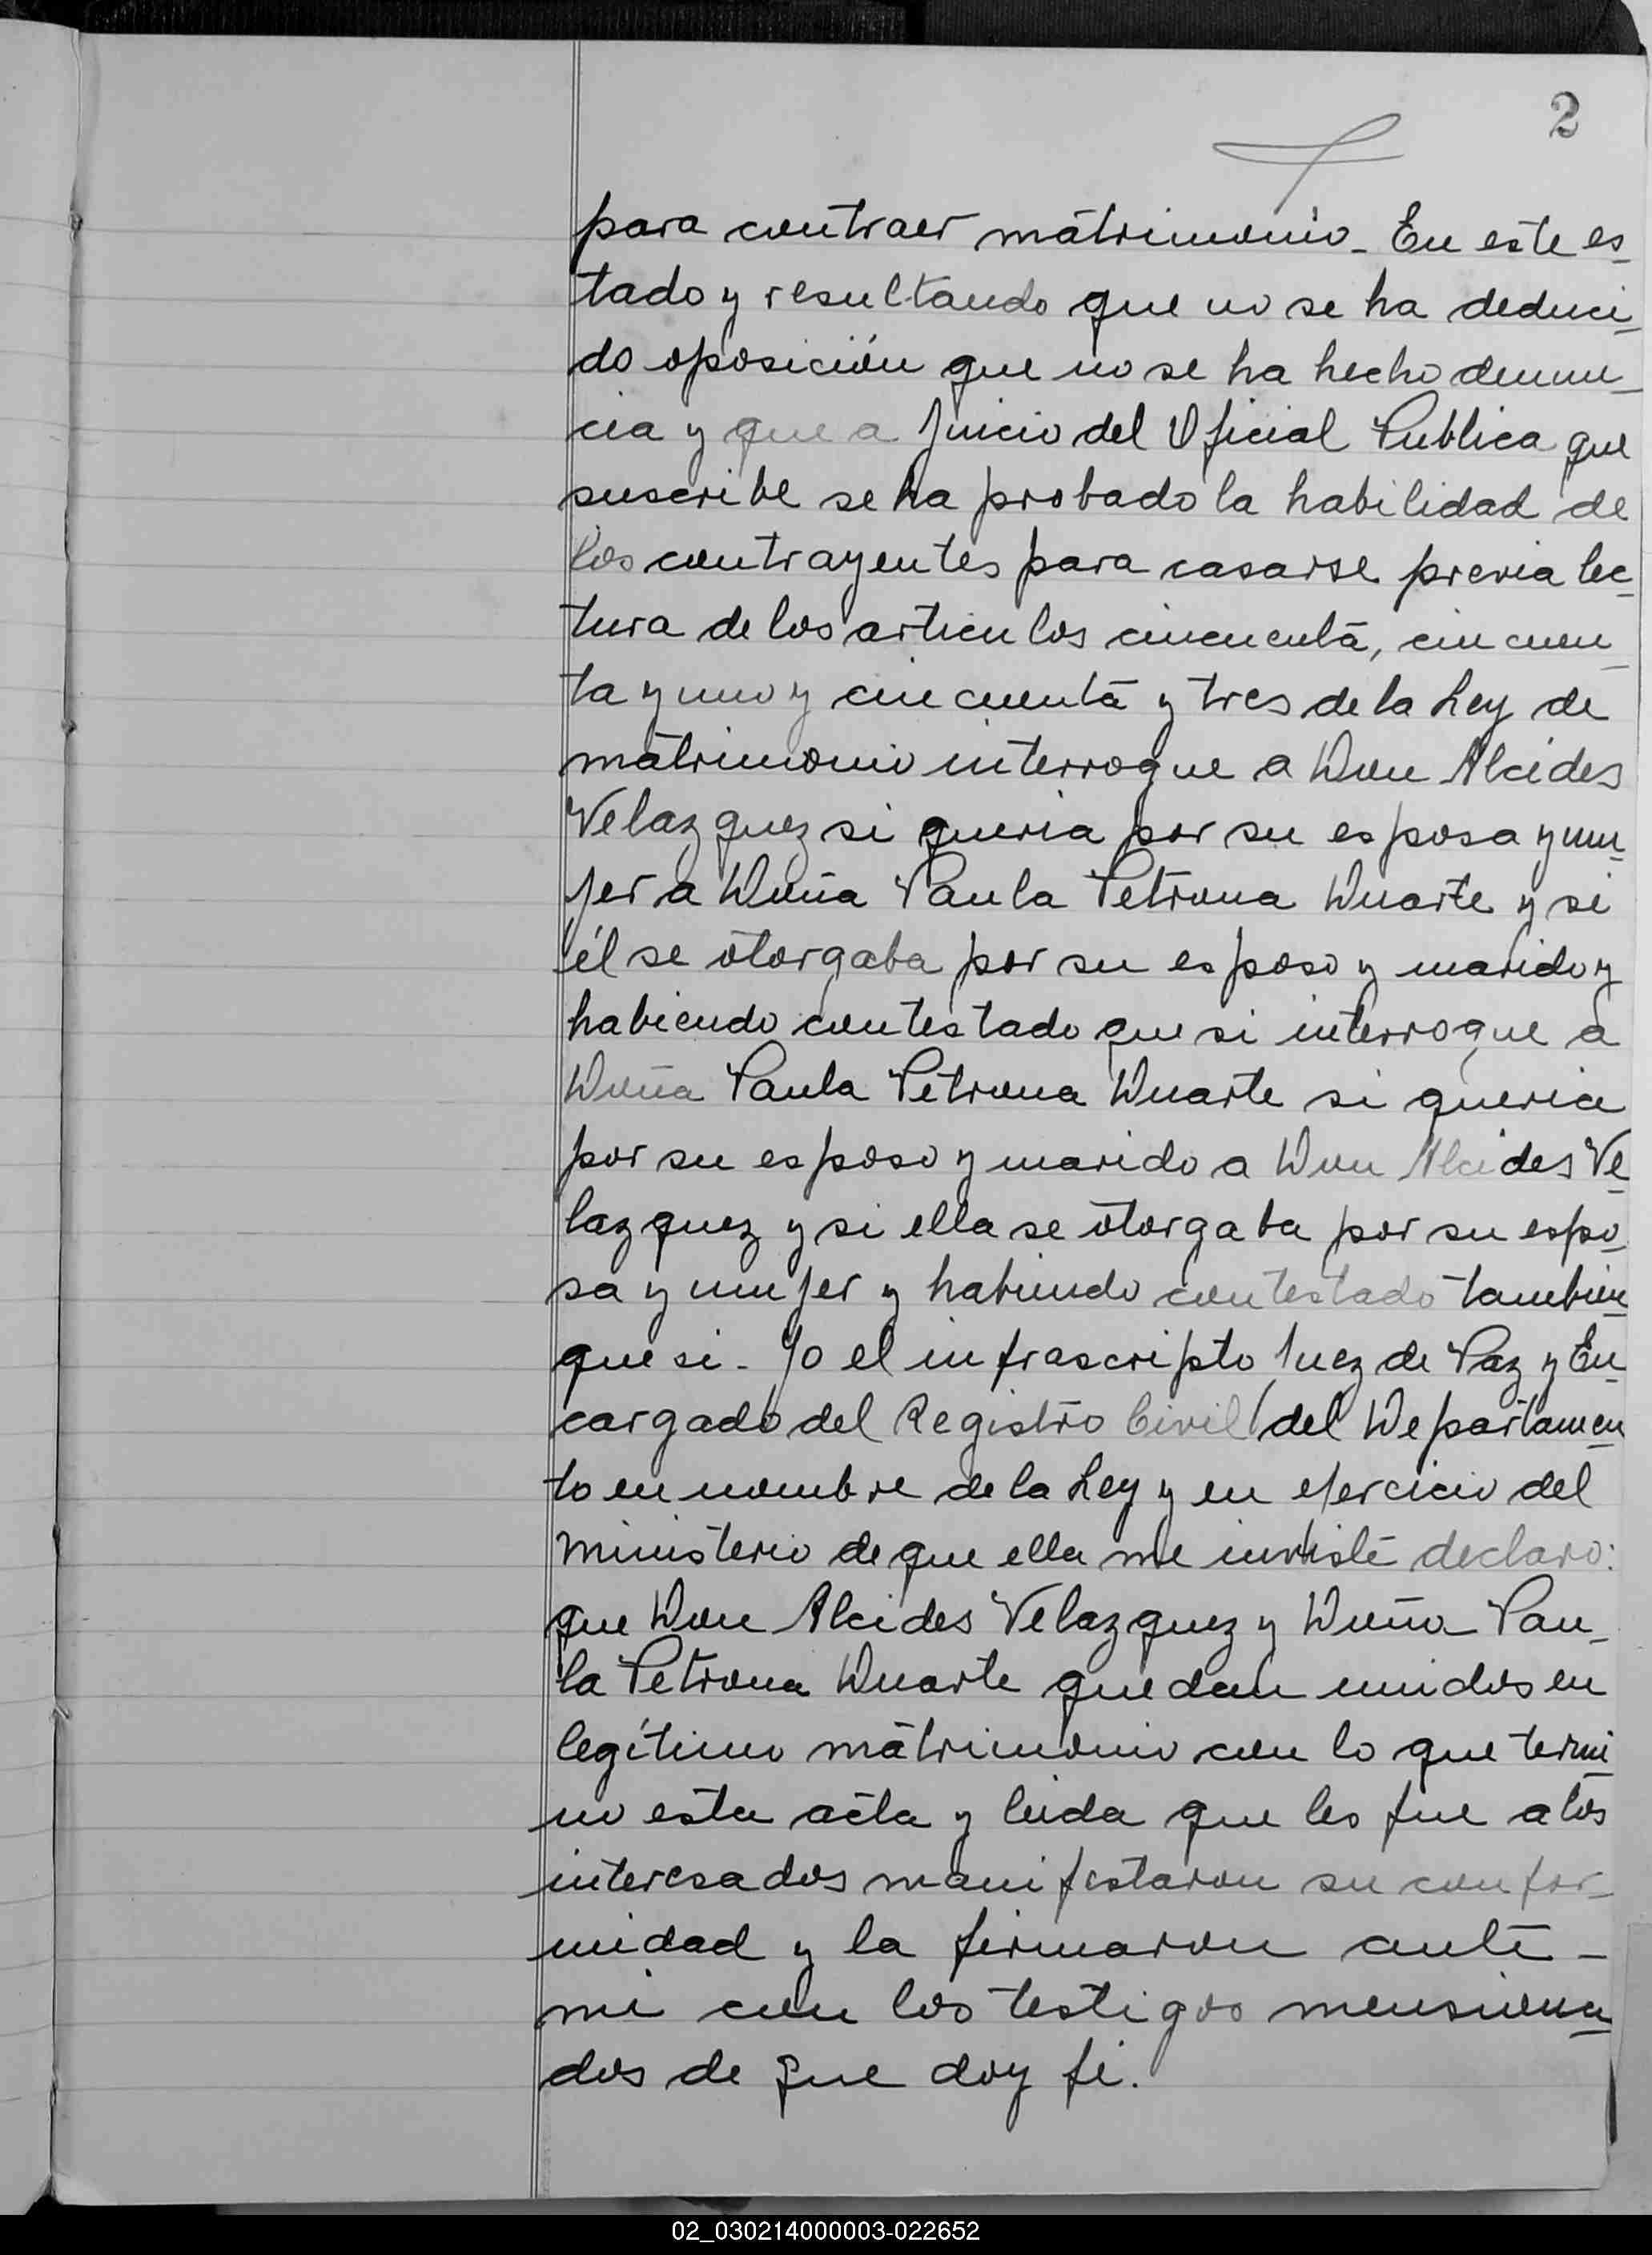 2
para contraer matrimonio_ En este es_
tado y resultando que no se ha deduci_
do oposición que no se ha hecho denun_
cia y que a Juicio del Oficial Publica que
suscribe se ha probado la habilidad de
los contrayentes para casarse previa lec_
tura de los articulos cincuenta, cincuen_
ta y uno y cincuenta y tres de la Ley de
matrimonio interrogue a Don Alcides
Velazquez si queria por su esposa y mu_
jer a Doña Paula Petrona Duarte y si
él se otorgaba por su esposo y marido y
habiendo contestado que si interrogue a
Doña Paula Petrona Duarte si queria
por su esposo y marido a Don Alcides Ve_
lazquez y si ella se otorgaba por su espo_
sa y mujer y habiendo contestado tambien
que si_ Yo el infrascripto Juez de Paz y En_
cargado del Registro Civil del Departamen
to en nombre de la Ley y en ejercicio del
ministerio de que ella me inviste declaro:
que Don Alcides Velazquez y Doña Pau_
la Petrona Duarte quedan unidos en
legítimo matrimonio con lo que termi_
no esta acta y leida que les fue a los
interesados manifestaron su confor_
midad y la firmaron ante_
mi con los testigos mensiona_
dos de que doy fé.
02_030214000003-022652